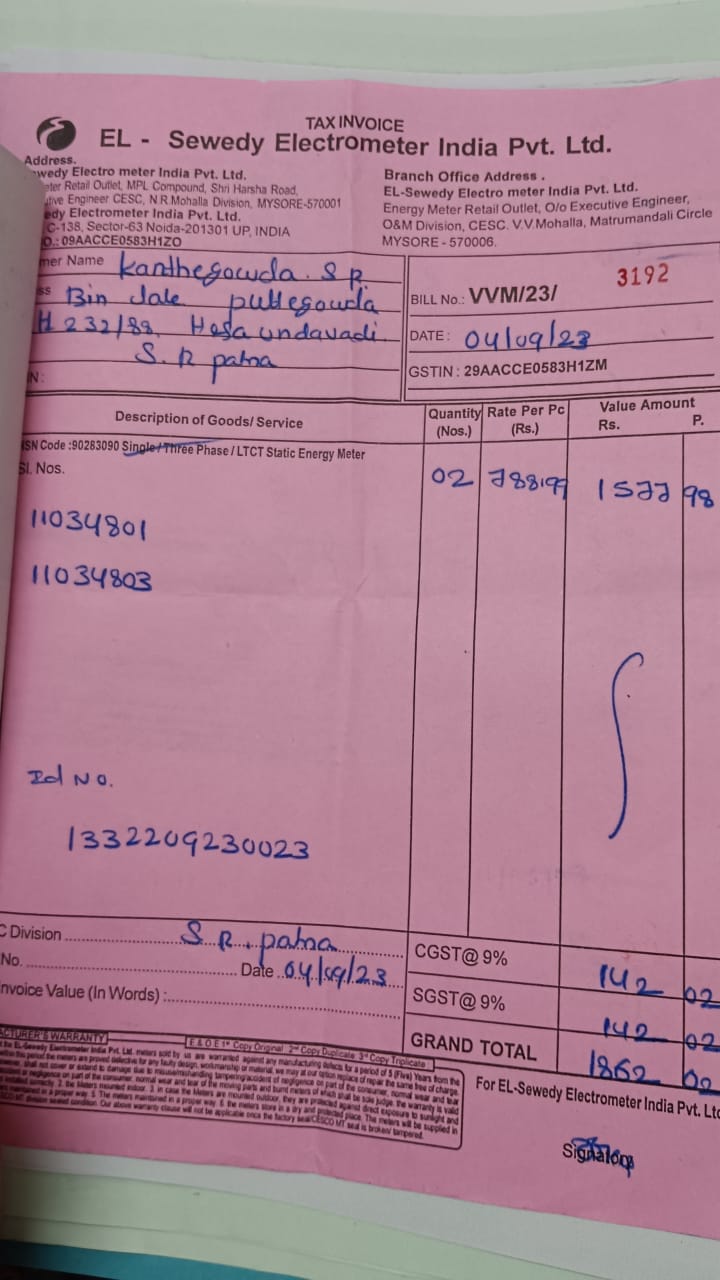 TAX INVOICE
EL - Sewedy Electrometer India Pvt. Ltd.
Address.
wedy Electro meter India Pvt. Ltd.
ter Retail Outlet, MPL Compound, Shri Harsha Road,
tive Engineer CESC, N.R.Mohalla Division, MYSORE-570001
edy Electrometer India Pvt. Ltd.
C-138, Sector-63 Noida-201301 UP, INDIA
O.: 09AACCE0583H1ZO
Branch Office Address .
EL-Sewedy Electro meter India Pvt. Ltd.
Energy Meter Retail Outlet, O/o Executive Engineer,
O&M Division, CESC. V.V.Mohalla, Matrumandali Circle
MYSORE - 570006.
mer Name Kanthegowda. S R.
ss Bin Jale puttegowda
H 232/88, Hosa undavadi
S. R patna
N:
BILL No.: VVM/23/ 3192
DATE: 04/09/23
GSTIN : 29AACCE0583H1ZM
Description of Goods/ Service Quantity (Nos.) Rate Per Pc (Rs.) Value Amount Rs. P.
HSN Code :90283090 Single/Three Phase / LTCT Static Energy Meter
Sl. Nos. 02 788.99 1577 98
11034801
11034803
Id No.
1332209230023
C Division S. R. patna
No. Date 04/09/23
nvoice Value (In Words) :
CGST@ 9% 142 02
SGST@ 9% 142 02
GRAND TOTAL 1862 02
E & O E 1st Copy Original 2nd Copy Duplicate 3rd Copy Triplicate
ACTURER'S WARRANTY
For EL-Sewedy Electrometer India Pvt. Ltd
Signatory